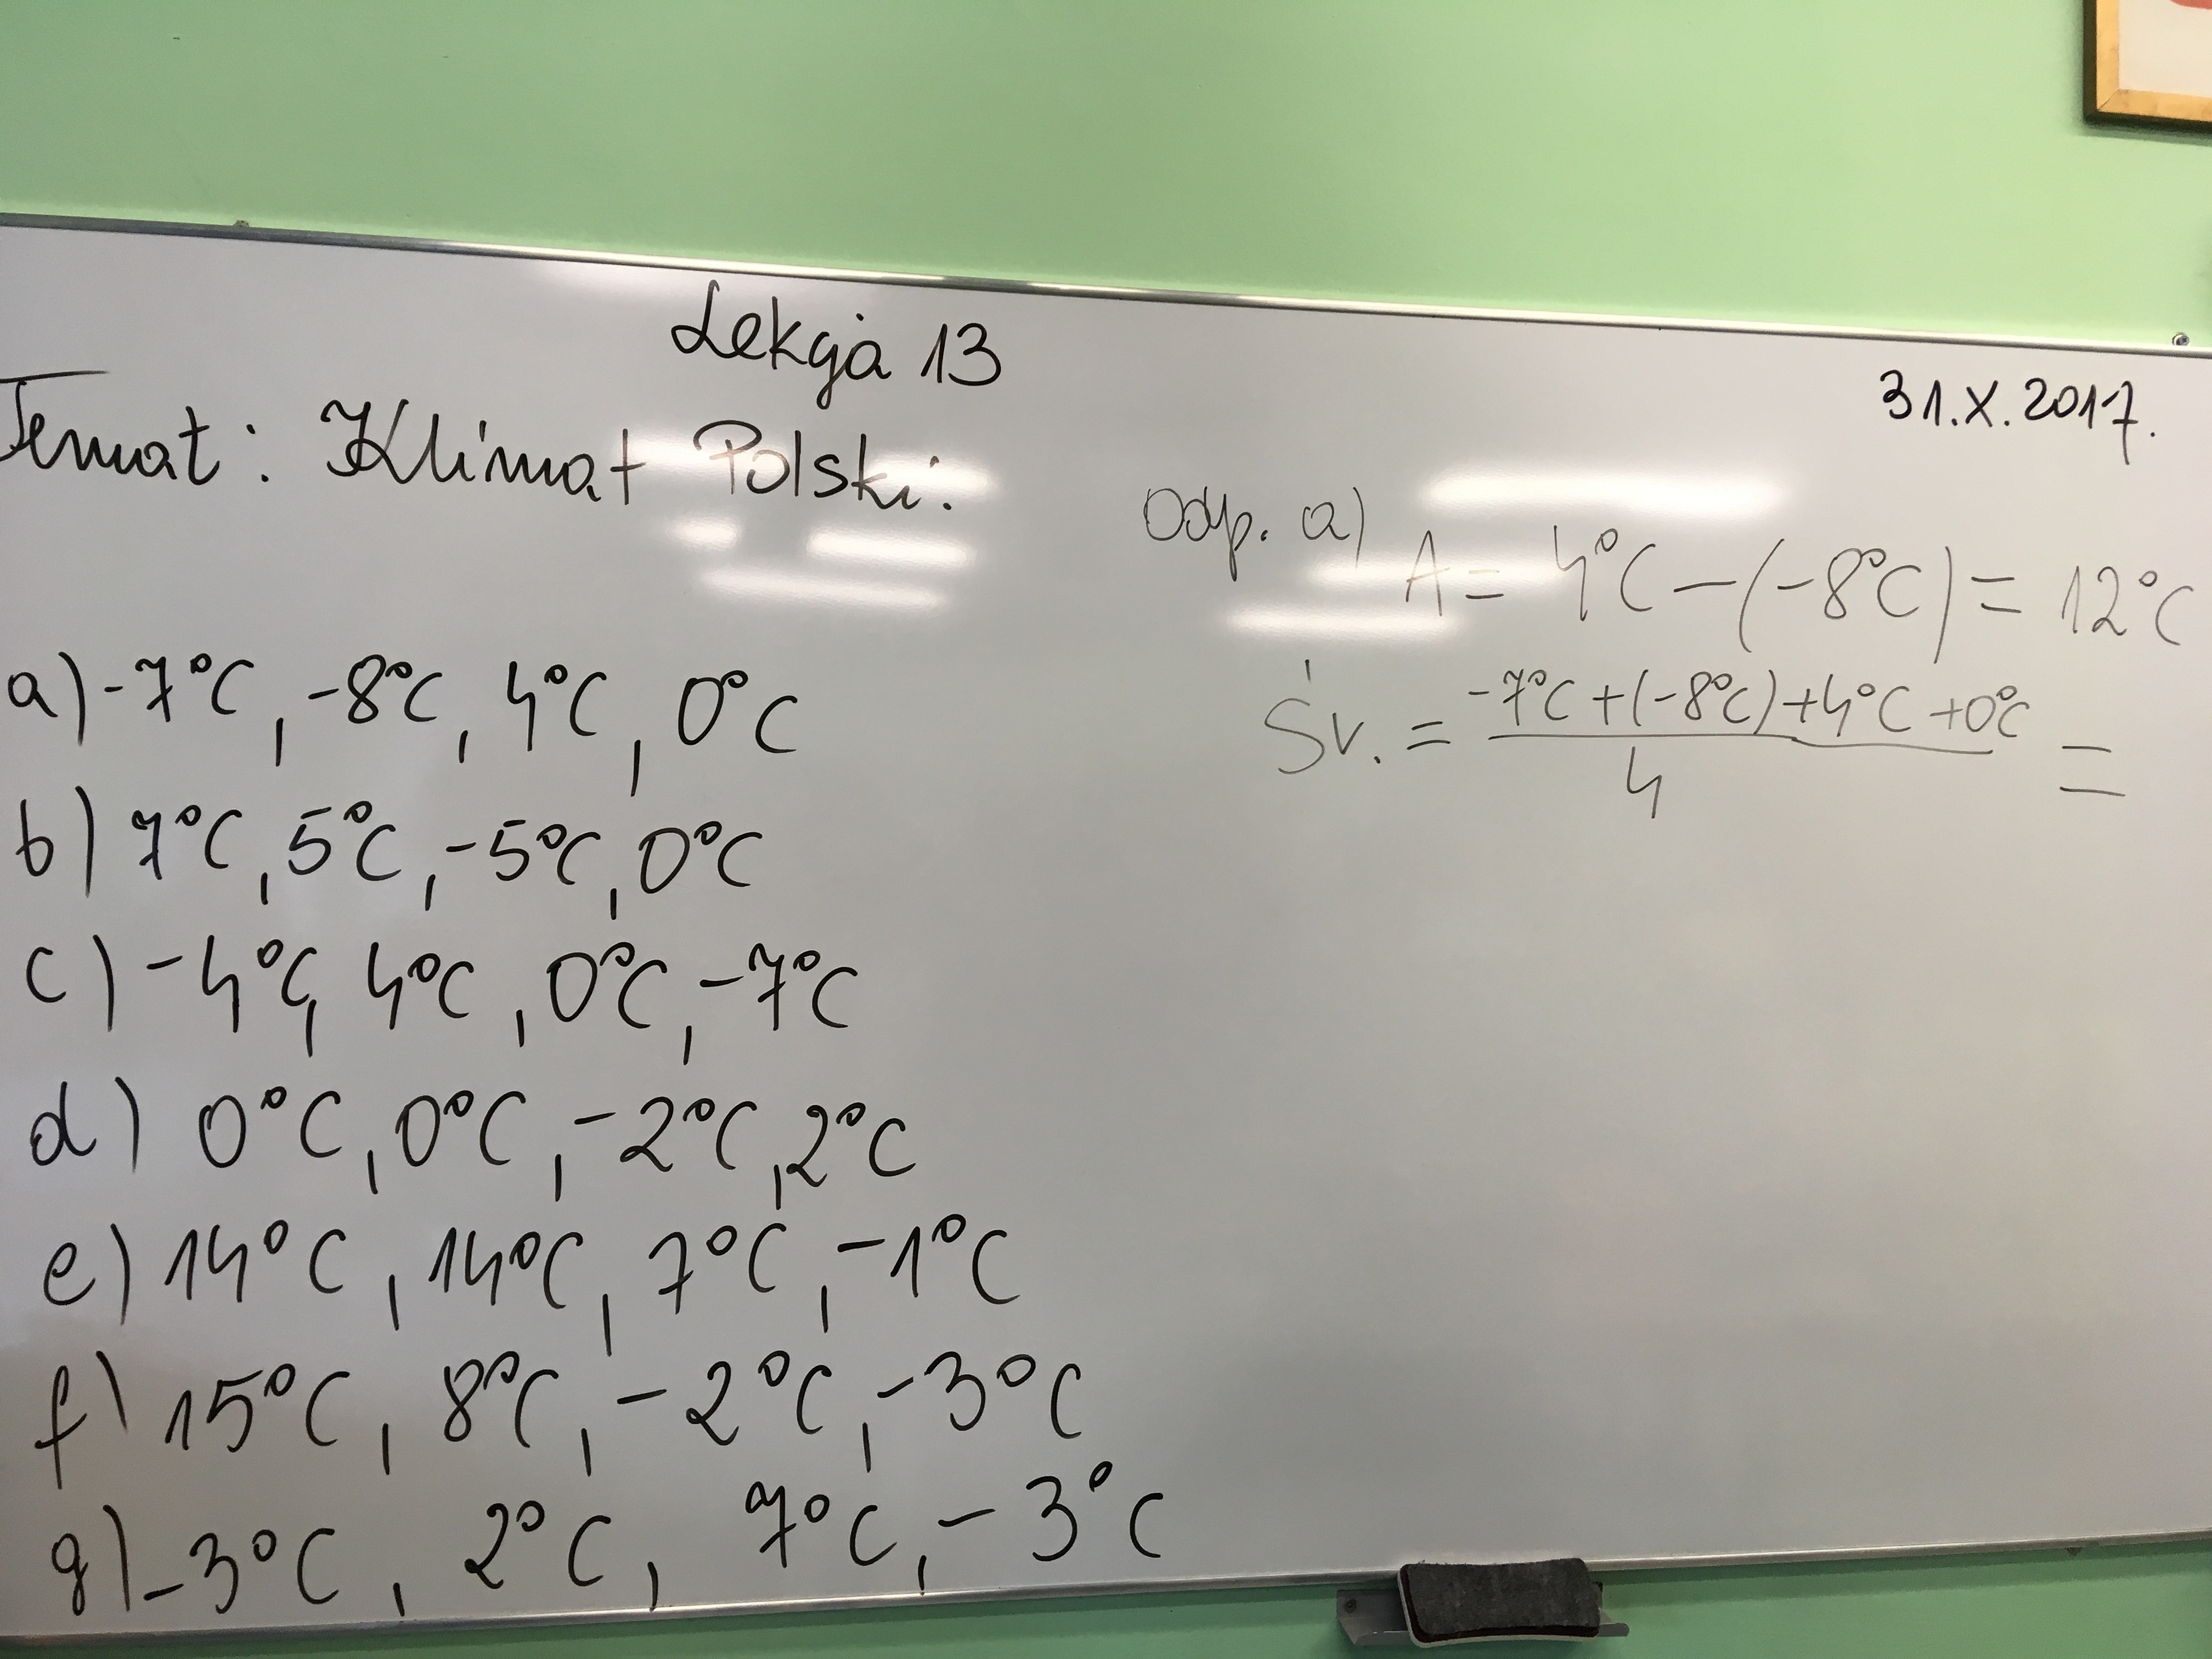 Lekcja 13
31.X.2017.
Temat: Klimat Polski.
a) -7°C, -8°C, 4°C, 0°C
b) 7°C, 5°C, -5°C, 0°C
c) -4°C, 4°C, 0°C, -7°C
d) 0°C, 0°C, -2°C, 2°C
e) 14°C, 14°C, 7°C, -1°C
f) 15°C, 8°C, -2°C, -3°C
g) -3°C, 2°C, 7°C, -3°C
Odp. a) A = 4°C - (-8°C) = 12°C
-7°C + (-8°C) + 4°C + 0°C
Śr. = =
4